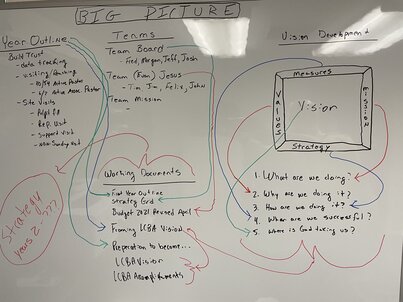 BIG PICTURE
Year Outline
Built Trust
- data tracking
- visiting/
- Active Pastor
- Active Assoc. Pastor
- Site Visits
- Rep. Visit
- Support Visit
- Non-Sunday Visit
Strategy
Years 2-???
Teams
Team Board
- Fred, Morgan, Jeff, Josh
Team (Fun) Jesus
- Tim, Jim, Felix, John
Team Mission
-
Working Documents
First Year Outline
Strategy Grid
Budget 2021 Revised April
Framing LCBA Vision
Preparation to become...
LCBA Vision
LCBA Accomplishments
Vision Development
Measures
Values
Vision
Mission
Strategy
1. What are we doing?
2. Why are we doing it?
3. How are we doing it?
4. When are we successful?
5. Where is God taking us?